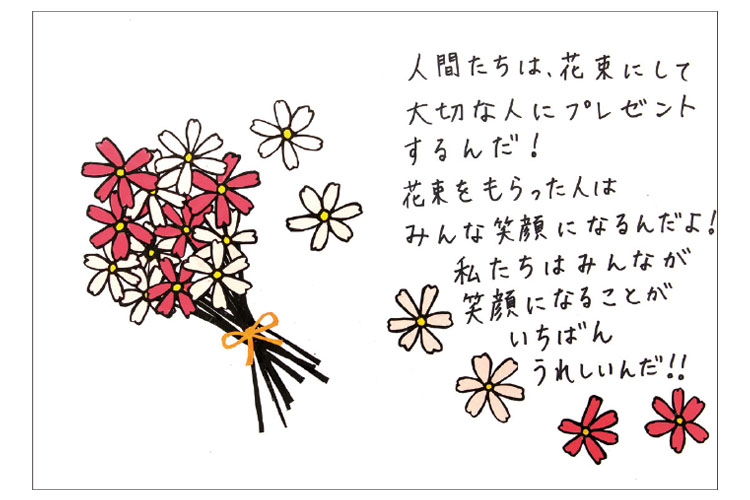 人間たちは、花束にして
大切な人にプレゼント
するんだ！
花束をもらった人は
みんな笑顔になるんだよ！
私たちはみんなが
笑顔になることが
いちばん
うれしいんだ！！